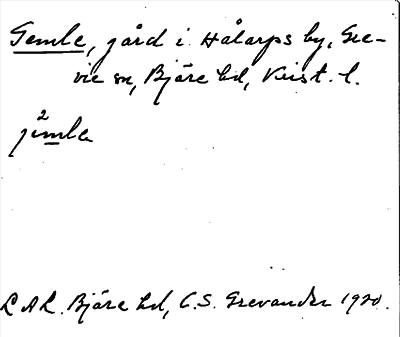 Gemle, gård i Hålarps by, Gre-
vie sn, Bjäre hd, Krist. l.
2
jimla
L A L. Bjäre hd, C.S. Grevander 1920.